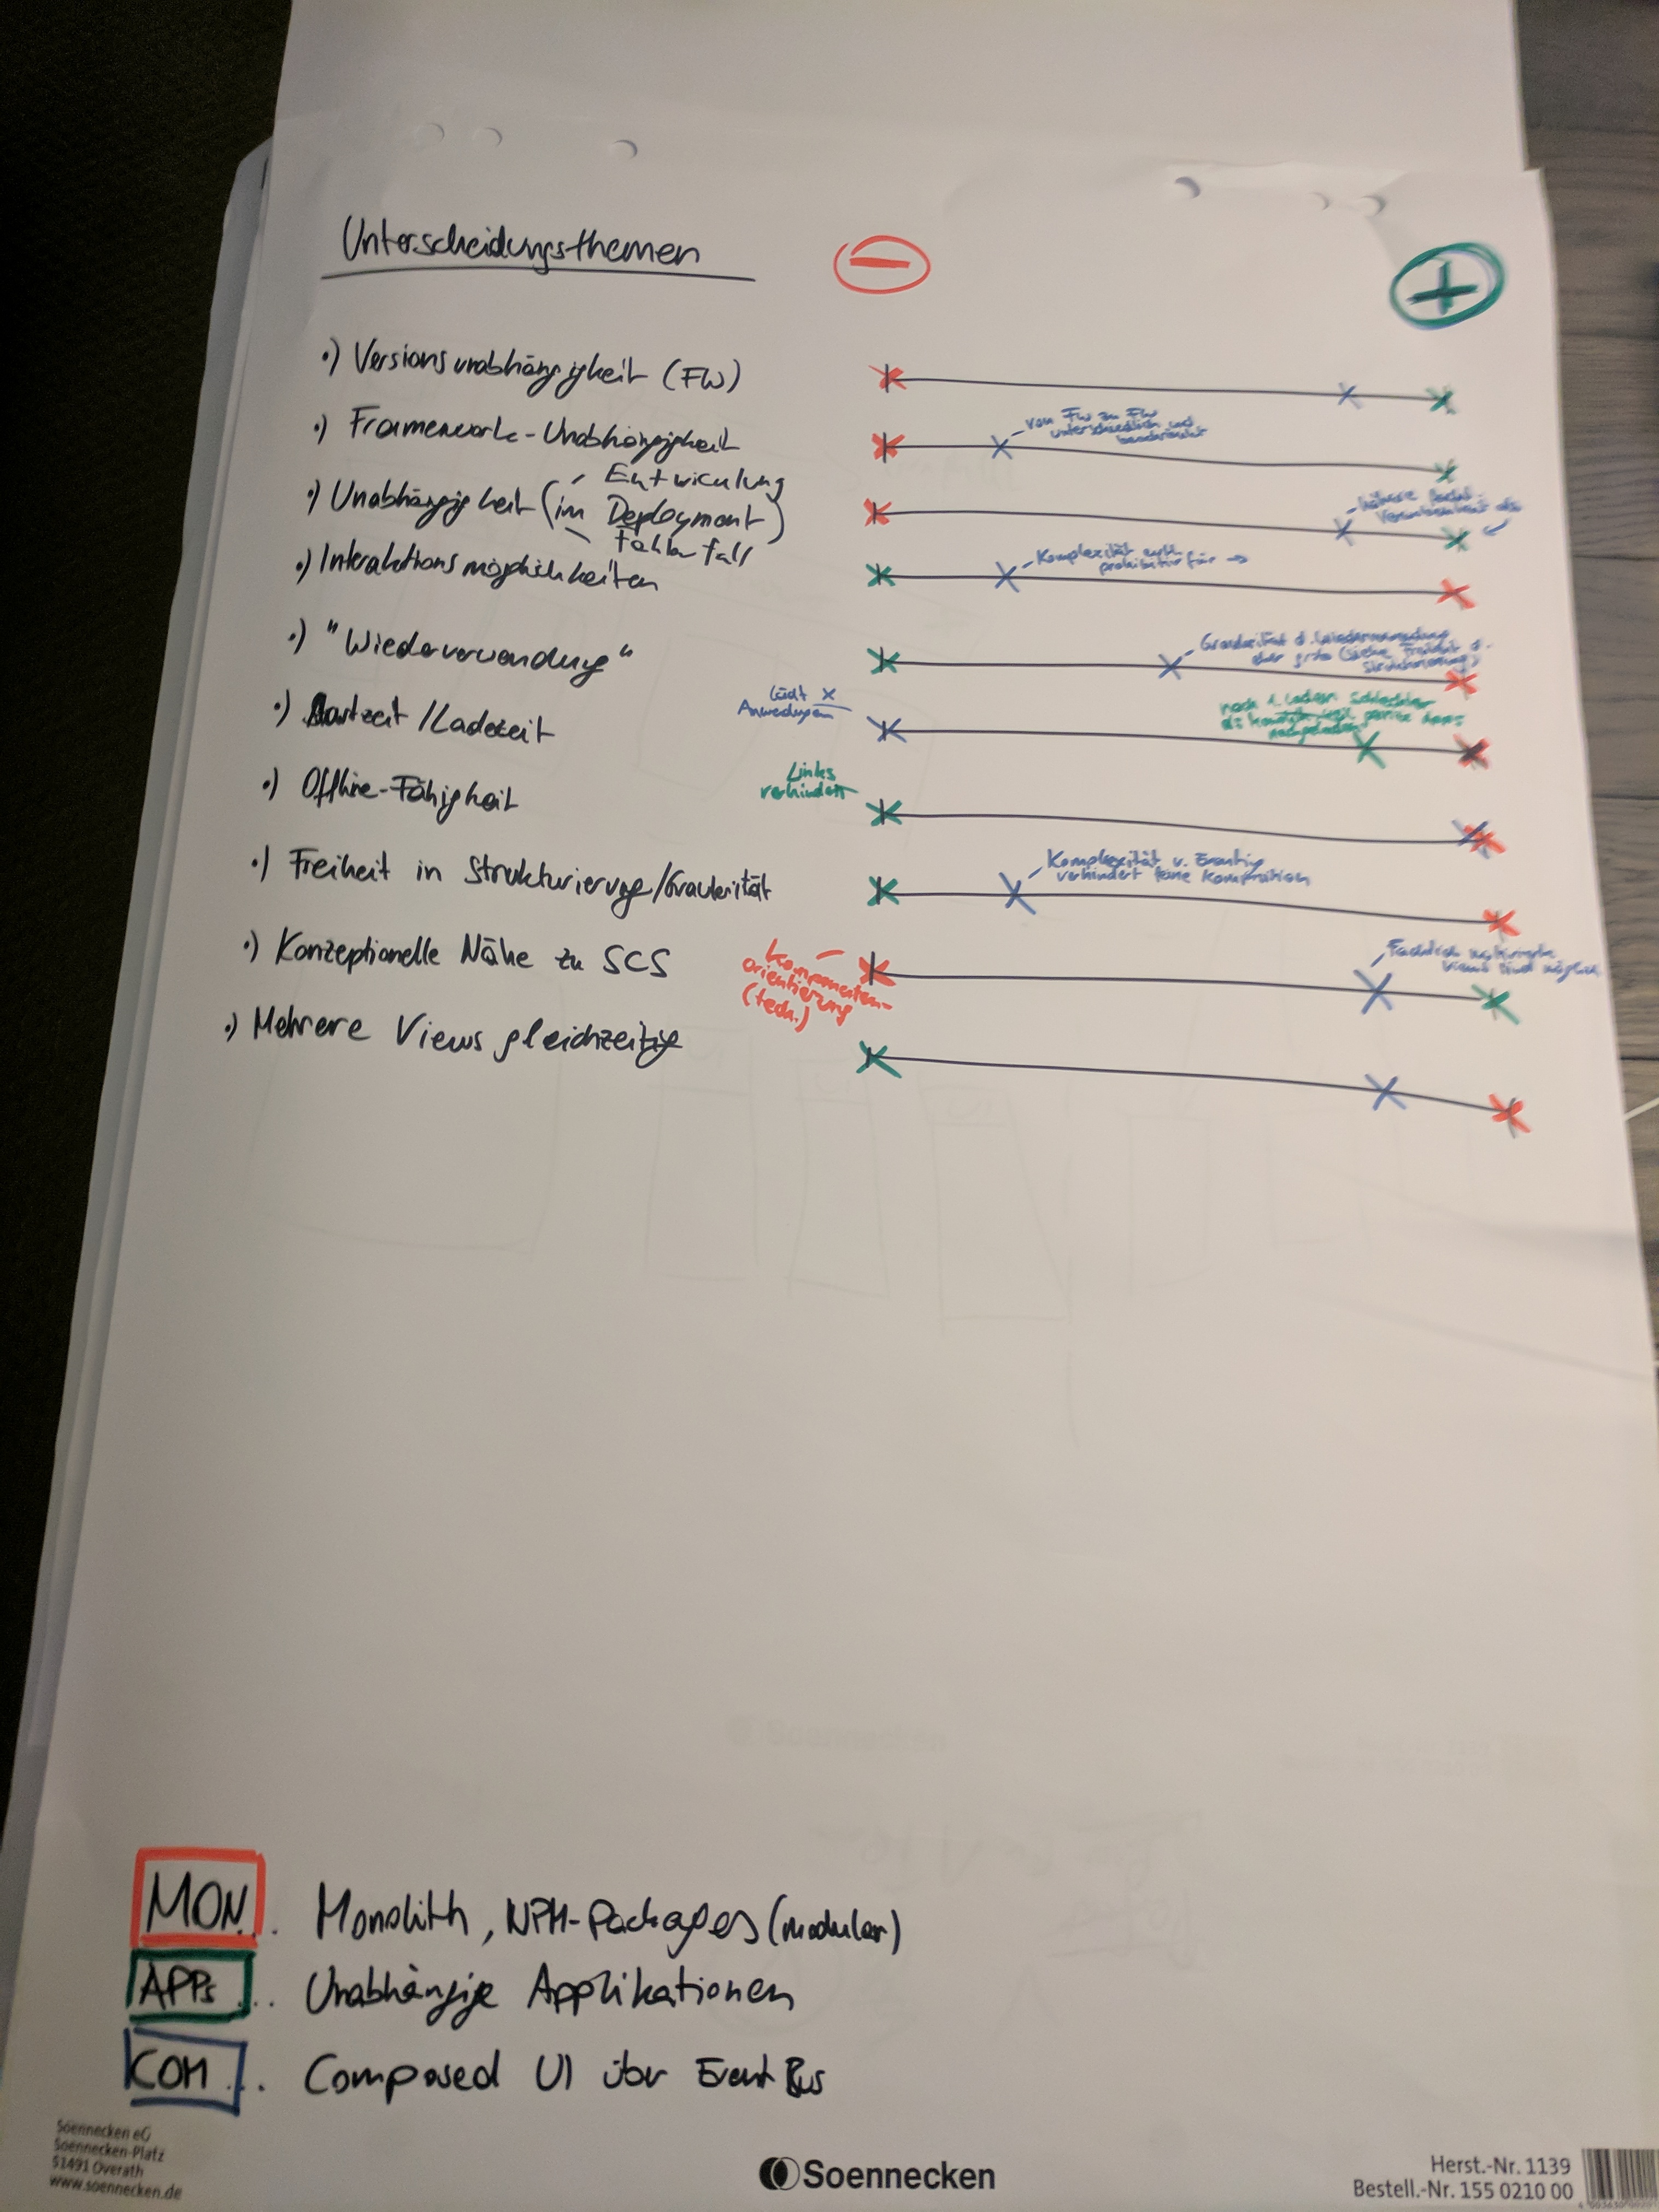 Unterscheidungsthemen
−
+
•) Versionsunabhängigkeit (FW)
•) Framework-Unabhängigkeit
von FW zu FW
unterschiedlich und
•) Unabhängigkeit (im
Entwicklung
Deployment)
Fehlerfall
höhere
•) Interaktionsmöglichkeiten
Komplexität
prohibitiv für →
•) "Wiederverwendung"
Granularität d. Wiederverwendung
eher grob (siehe Freiheit d.
Strukturierung)
•) Startzeit/Ladezeit
lädt x
Anwendungen
nach d. Laden schlechter
•) Offline-Fähigkeit
Links
verhindern
•) Freiheit in Strukturierung/Granularität
Komplexität v. Eventing
verhindert feine Komposition
•) Konzeptionelle Nähe zu SCS
Komponenten-
orientierung
(tech.)
Fachlich
Views sind möglich
•) Mehrere Views gleichzeitig
MON... Monolith, NPM-Packages (modular)
APPs... Unabhängige Applikationen
COM... Composed UI über Event Bus
Soennecken eG
Soennecken-Platz
51491 Overath
www.soennecken.de
Soennecken
Herst.-Nr. 1139
Bestell.-Nr. 155 0210 00